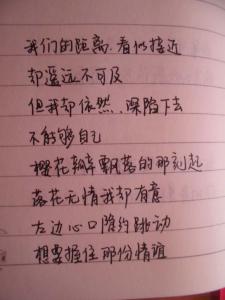 我们的距离.看似接近
却遥远不可及
但我却依然.深陷下去
不能够自己
樱花瓣飘落的那刻起
落花无情我却有意
左边心口隐约跳动
想要握住那份情谊